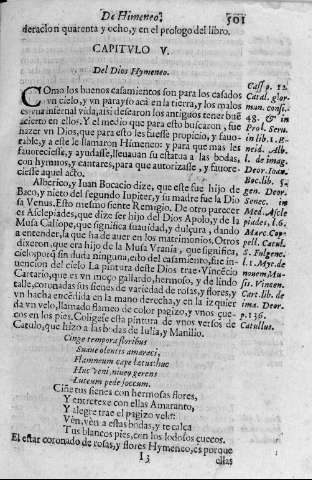 De Himeneo. 501
deracion quarenta y ocho, y en el prologo del libro.
CAPITVLO V.
Del Dios Hymeneo.
COmo los buenos casamientos son para los casados
vn cielo, y vn parayso acà en la tierra, y los malos
es vn infernal vida, assi dessearon los antiguos tener buē
acierto en ellos. Y el medio que para esto buscaron, fue
hazer vn Dios, que para esto les fuesse propicio, y fauo-
rable, y a este le llamaron Himeneo: y para que mas les
fauoreciesse, y ayudasse, lleuauan su estatua a las bodas,
con hymnos, y cantares, para que autorizasse, y fauore-
ciesse aquel acto.
Alberico, y Iuan Bocacio dize, que este fue hijo de
Baco, y nieto del segundo Iupiter, y su madre fue la Dio
sa Venus. Esto mesmo siente Remigio. De otro parecer
es Asclepiades, que dize ser hijo del Dios Apolo, y de la
Musa Caliope, que significa suauidad, y dulçura, dando
a entender, la que ha de auer en los matrimonios. Otros
dixeron, que era hijo de la Musa Vrania, que significa,
cielo, porq̄ sin duda ninguna, esto del casamiento, fue in-
uencion del cielo. La pintura deste Dios trae Vincēcio
Cartario, que es vn moço gallardo, hermoso, y de lindo
talle, coronadas sus sienes de variedad de rosas, y flores, y
vn hacha encēdida en la mano derecha, y en la izquier
da vn velo, llamado flameo de color pagizo, y vnos çue-
cos en los pies. Coligese esta pintura de vnos versos de
Catulo, que hizo a las bodas de Iulia, y Manilio.
Cinge tempora floribus
Suaue olentis amaraci,
Flammeum cape latus: huc
Huc veni, niueo gerens
Luteum pede soccum.
Ciñe tus sienes con hermosas flores,
Y entretexe con ellas Amaranto,
Y alegre trae el pagizo velo:
Vēn, vēn a estas bodas, y te calça
Tus blancos pies, con los lodosos çuecos.
El estar coronado de rosas, y flores Hymeneo, es porque
I3 ellas
Cass. p. 12.
Catal. glor-
mun. consi.
48. & in
Prol. Seru.
in lib. 1. Æ-
neid. Alb.
l. de imag.
Deor. Ioan.
Boc. lib. 5.
gen. Deor.
Senec. in
Med. Ascle
piades, l. 6.
Marc. Cap-
pell. Catul.
S. Fulgent.
l. 1. Myr. de
nouem Mu-
sis. Vincen.
Cart. lib. de
ima. Deor.
p. 136.
Catullus.